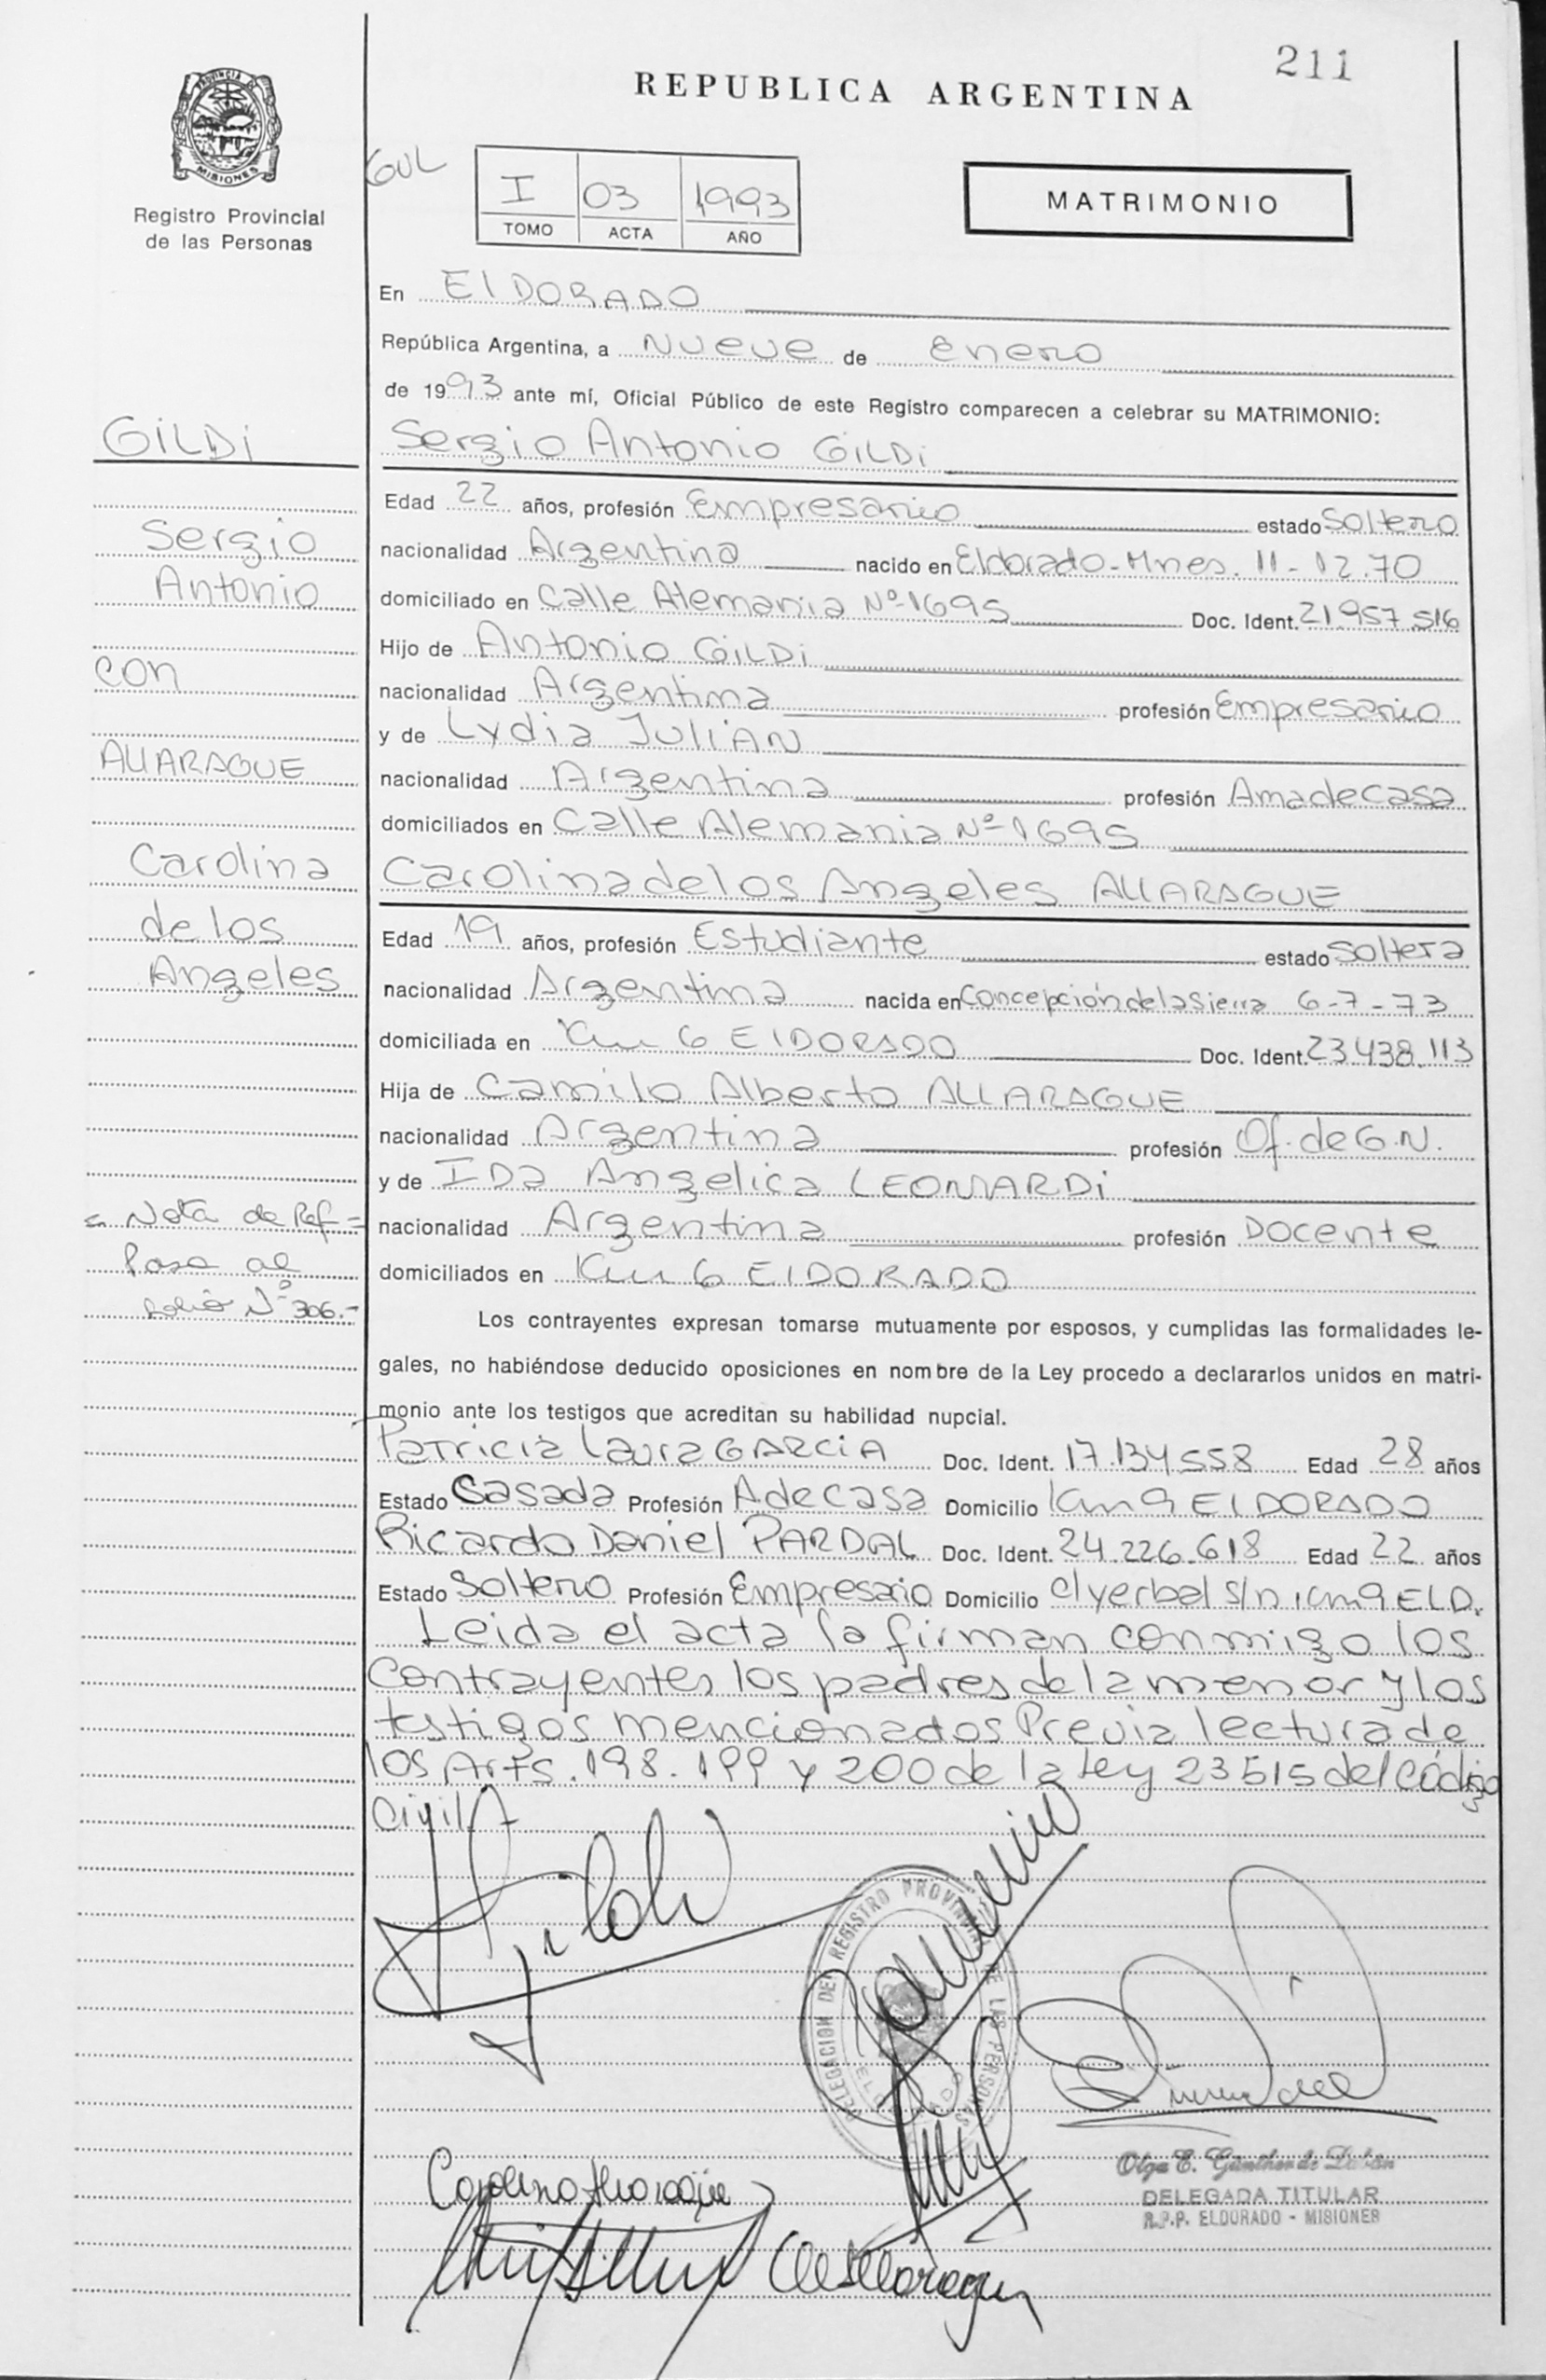 211
REPUBLICA ARGENTINA
PROVINCIA DE
MISIONES
Registro Provincial
de las Personas
GUL
I 03 1993
TOMO ACTA AÑO
MATRIMONIO
En ElDORADO
República Argentina, a Nueve de Enero
de 1993 ante mí, Oficial Público de este Registro comparecen a celebrar su MATRIMONIO:
GiLDi
Sergio Antonio GiLDi
Edad 22 años, profesión Empresario estado Soltero
Sergio
nacionalidad Argentina nacido en Eldorado-Mnes. 11-12.70
Antonio
domiciliado en Calle Alemania Nº 1695 Doc. Ident. 21.957.516
Hijo de Antonio GiLDi
con
nacionalidad Argentina profesión Empresario
y de Lydia JuliAN
AllARAGUE
nacionalidad Argentina profesión Amadecasa
domiciliados en Calle Alemania Nº 1695
Carolina
Carolina de los Angeles AllARAGUE
de los
Edad 19 años, profesión Estudiante estado Soltera
Angeles
nacionalidad Argentina nacida en Concepción de la Sierra 6-7-73
domiciliada en Km 6 ElDORADO Doc. Ident. 23.438.113
Hija de Camilo Alberto AllARAGUE
nacionalidad Argentina profesión Of. de G.N.
y de IDa Angelica LEONARDi
= Nota de Ref =
nacionalidad Argentina profesión Docente
Pasa al
domiciliados en Km 6 ElDORADO
folio Nº 306.-
Los contrayentes expresan tomarse mutuamente por esposos, y cumplidas las formalidades le-
gales, no habiéndose deducido oposiciones en nombre de la Ley procedo a declararlos unidos en matri-
monio ante los testigos que acreditan su habilidad nupcial.
Patricia Laura GARCiA Doc. Ident. 17.134.558 Edad 28 años
Estado Casada Profesión A de casa Domicilio Km 9 ElDORADO
Ricardo Daniel PARDAL Doc. Ident. 24.226.618 Edad 22 años
Estado Soltero Profesión Empresario Domicilio c/yerbal s/n Km 9 ELD.
Leida el acta la firman conmigo los
Contrayentes los padres de la menor y los
testigos mencionados Previa lectura de
los Arts. 198. 199 y 200 de la Ley 23515 del Código
Civil
DELEGACION DEL REGISTRO PROVINCIAL DE LAS PERSONAS
ELDORADO
Carolina Allaragüe
Olga E. Günther de
DELEGADA TITULAR
R.P.P. ELDORADO - MISIONES